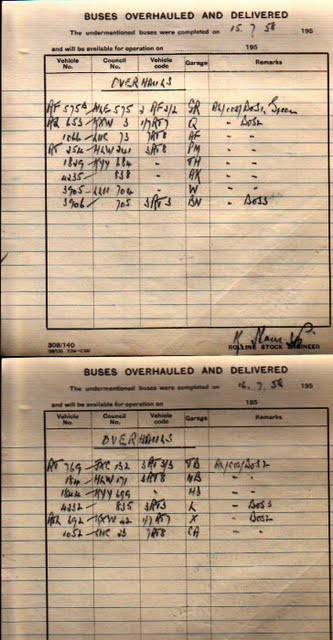 BUSES OVERHAULED AND DELIVERED
The undermentioned buses were completed on 15.7.58 195
and will be available for operation on 195
Vehicle No. Council No. Vehicle code Garage Remarks
OVERHAULS
RF 575 NLE 575 2 RF 2/2 GR Green
653 KXW 3 1/7RT7 Q " DOS2
1066 LUC 73 7RT8 AF " "
RT 254 HLW 241 3RT8 PM " "
1829 KYY 684 " TH " "
4235 838 " AK " "
3905 LLU 704 " W " "
3906 705 3RT3 BN " DOS3
308/140
ROLLING STOCK ENGINEER
BUSES OVERHAULED AND DELIVERED
The undermentioned buses were completed on 16.7.58 195
and will be available for operation on 195
Vehicle No. Council No. Vehicle code Garage Remarks
OVERHAULS
RT 769 JXC 132 3RT3/3 TB
184 HLW 171 3RT8 NB " "
1844 KYY 699 " H3 " "
4232 835 3RT3 L " DOS3
692 KXW 42 1/7RT7 X " DOS2
1052 LUC 23 7RT8 CA " "